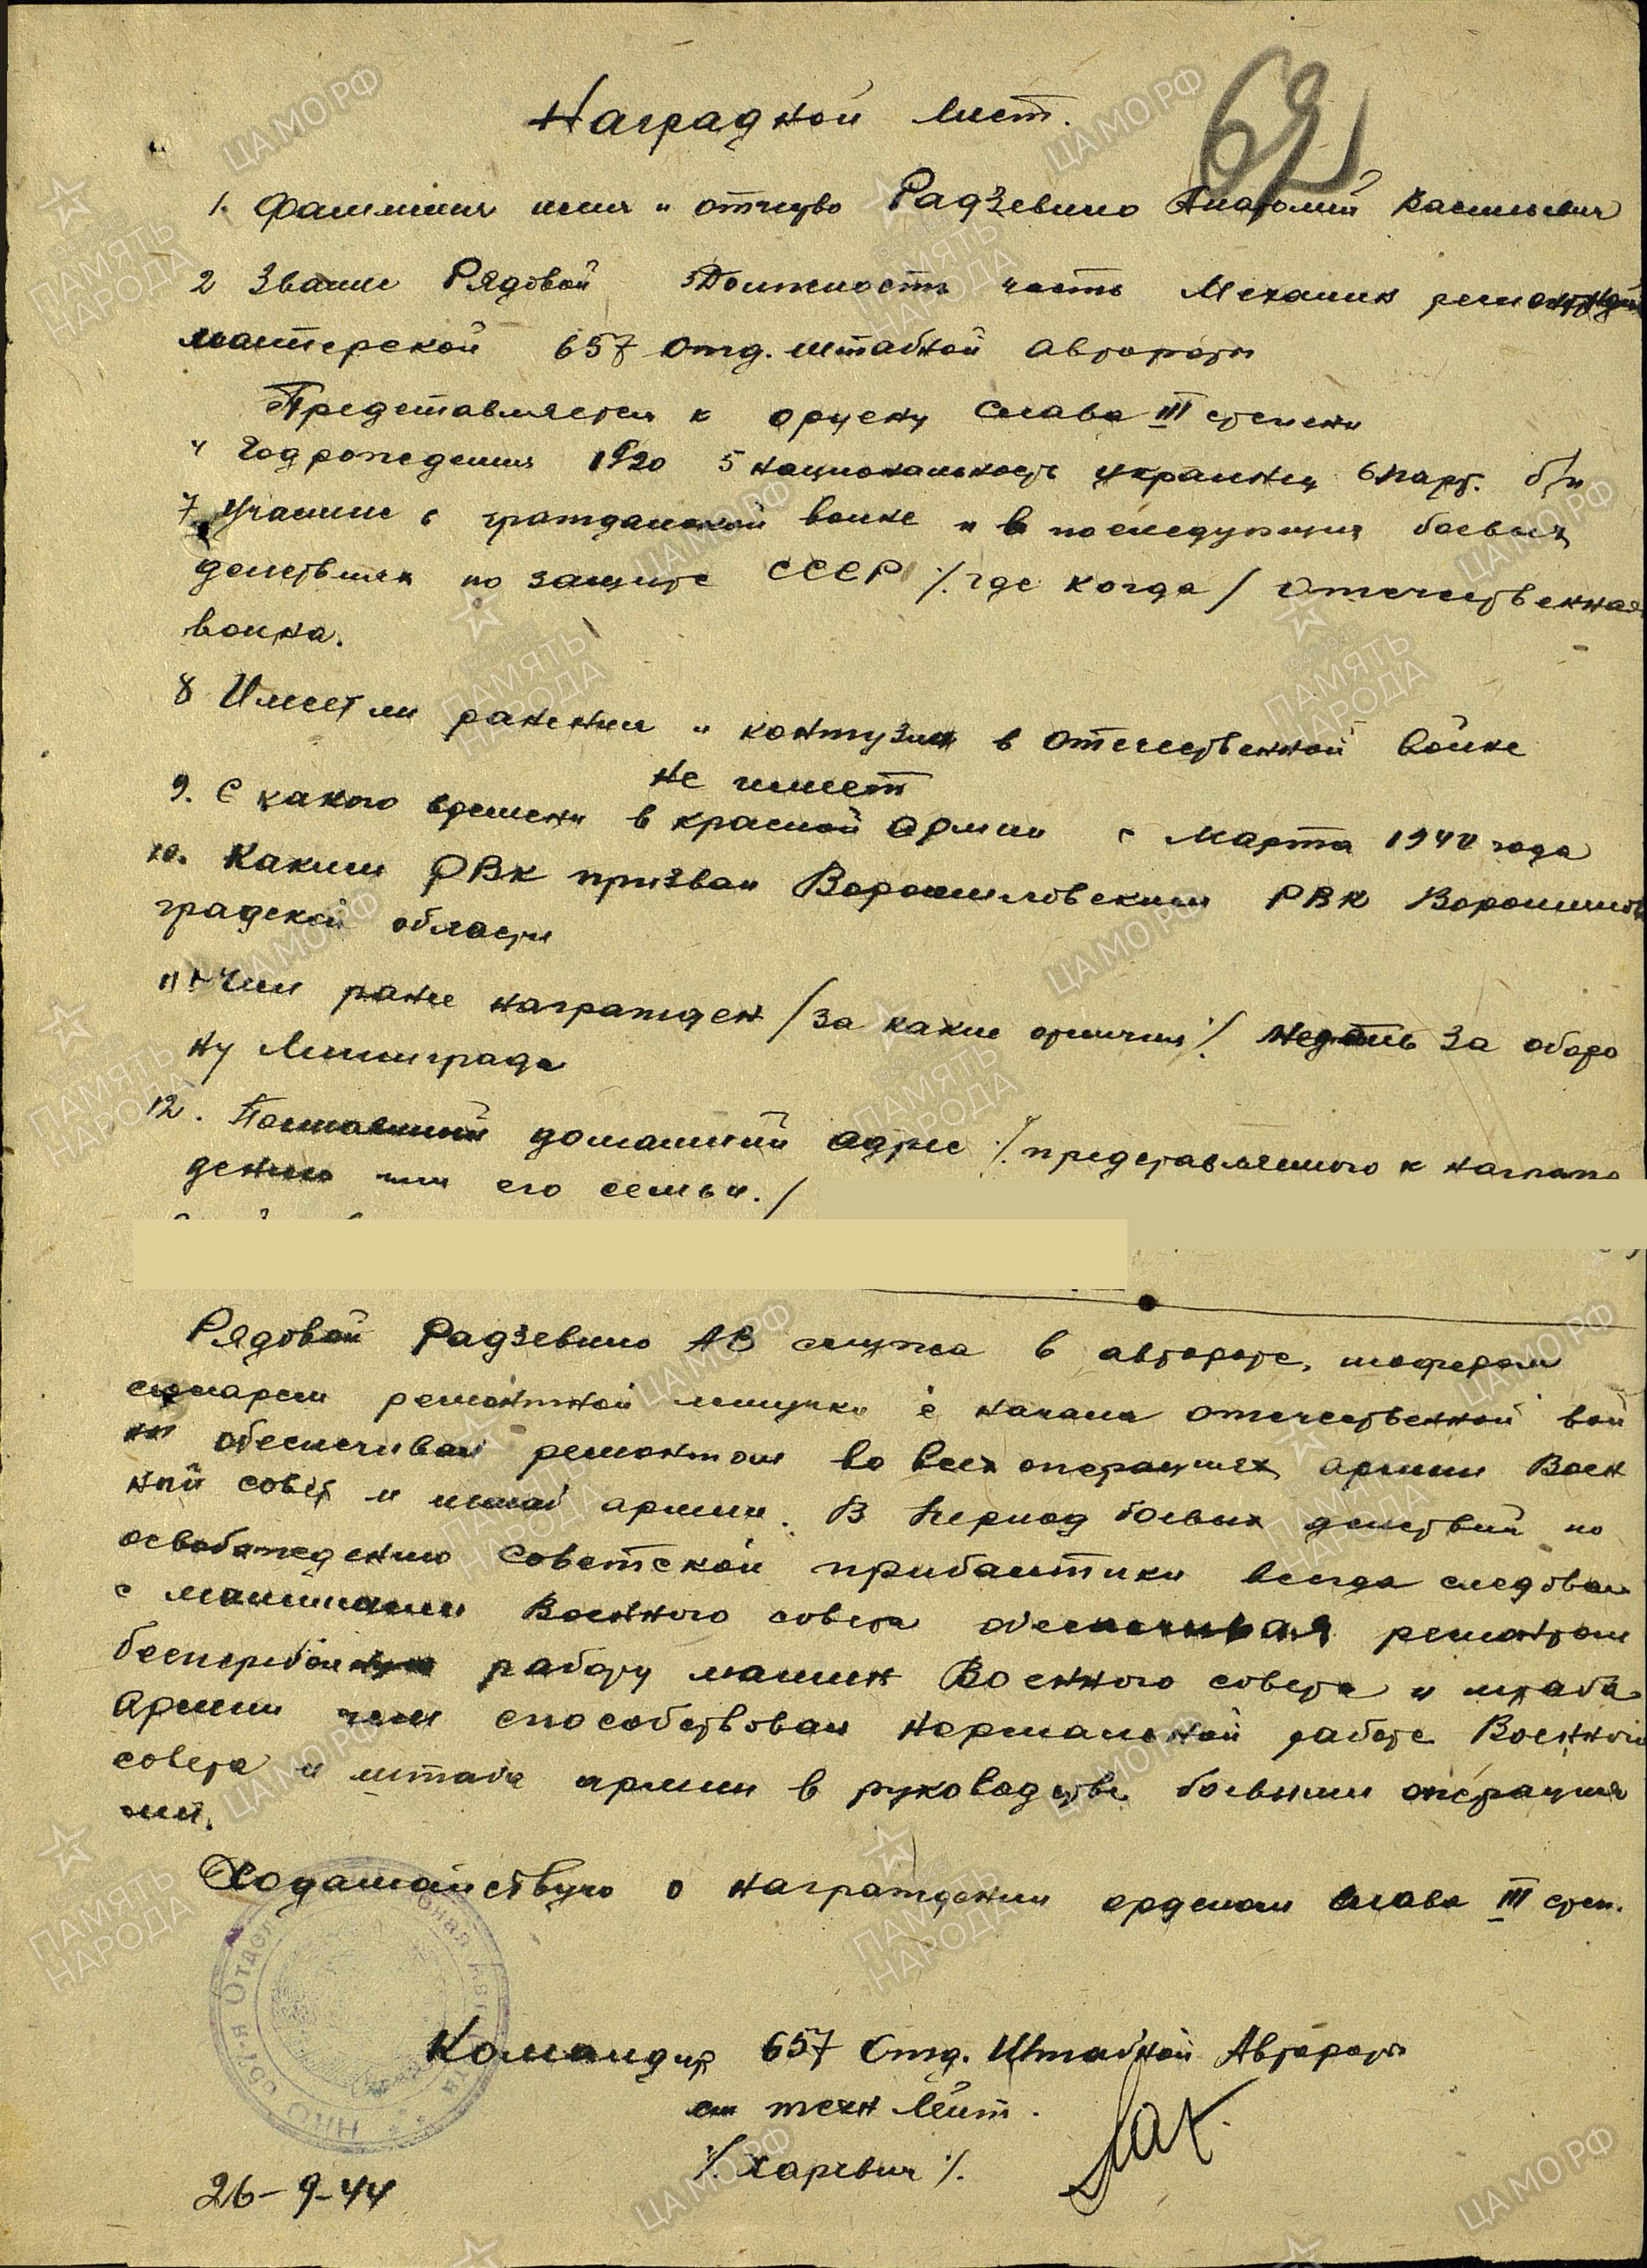 Наградной лист.
69
1. Фамилия имя и отчество Радзевило Анатолий Васильевич
2 Звание Рядовой Должность часть Механик ремонтной
мастерской 657 отд. штабной автороты
Представляется к ордену Слава III степени
4 Год рождения 1920 5 национальность украинец 6 парт. б/п
7 Участие в гражданской воине и в последующих боевых
действиях по защите СССР /где когда/ Отечественная
воина.
8 Имеет ли ранения и контузии в отечественной войне
не имеет
9. С какого времени в красной армии с марта 1940 года
10. Каким РВК призван Ворошиловским РВК Ворошилов
градской области
11. Чем ранее награжден /за какие отличия/ Медаль За оборо
ну Ленинграда
12. Постоянный домашний адрес /представляемого к награж
дению или его семьи./
Рядовой Радзевило АВ служа в автороте, шофером
слесарем ремонтной летучки с начала отечественной вой
ны обеспечивал ремонтом во всех операциях армии Воен
ный совет и штаб армии. В период боевых действий по
освобождению советской прибалтики всегда следовал
с машинами Военного совета обеспечивая ремонтом
бесперебойную работу машин Военного совета и штаба
Армии чем способствовал нормальной работе Военного
совета и штаба армии в руководстве боевыми операция
ми.
Ходатайствую о награждении орденом слава III степ.
Командир 657 Отд. Штабной Автороты
ст техн Лейт.
/Харевич/.
26-9-44
НКО 657-я Отдел
ЦАМО.РФ
ПАМЯТЬ
НАРОДА